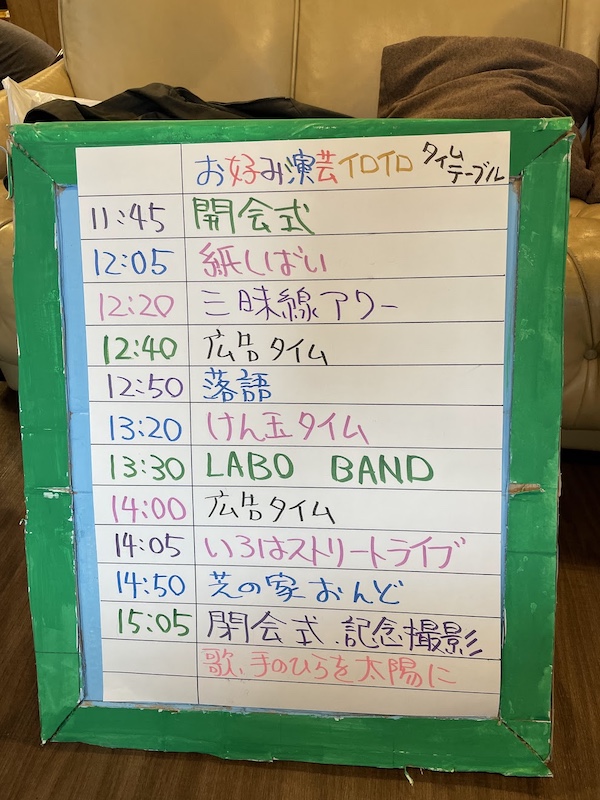 お好み演芸イロイロ タイムテーブル
11:45 開会式
12:05 紙しばい
12:20 三味線アワー
12:40 広告タイム
12:50 落語
13:20 けん玉タイム
13:30 LABO BAND
14:00 広告タイム
14:05 いろはストリートライブ
14:50 芝の家おんど
15:05 閉会式.記念撮影
歌、手のひらを太陽に